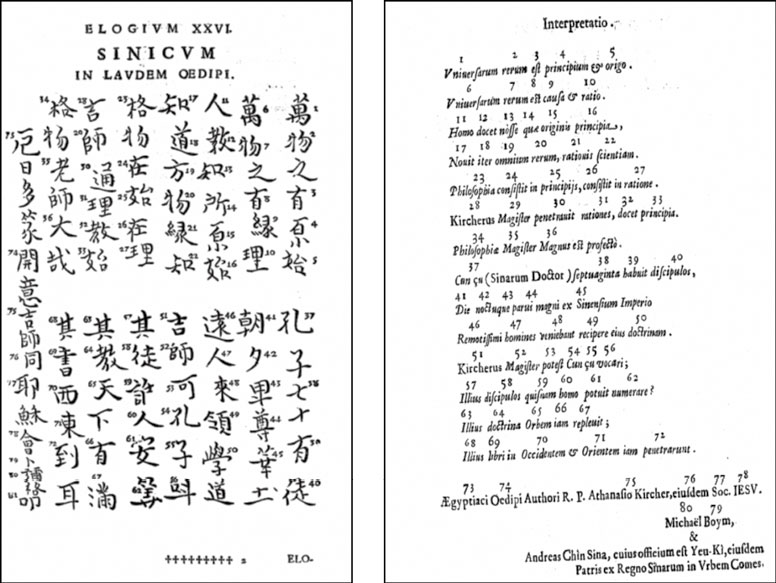 ELOGIVM XXVI.
SINICVM
IN LAVDEM OEDIPI.
萬物之有原始
萬物之有緣理
人教知所原始
知道方物緣知
格物在始在理
吉師通理教始
格物老師大哉
孔子七十有徒
朝夕卑尊華土
遠人來領學道
吉師可孔子
其徒許人安算
其教天下有滿
其書西東到耳
厄日多篆開意吉師同耶穌會卜彌格叩
††††††††† 2 ELO-
Interpretatio.
1 2 3 4 5
Vniuersarum rerum est principium & origo.
6 7 8 9 10
Vniuersarum rerum est causa & ratio.
11 12 13 14 15 16
Homo docet nosse quæ originis principia,
17 18 19 20 21 22
Nouit iter omnium rerum, rationis scientiam.
23 24 25 26 27
Philosophia consistit in principijs, consistit in ratione.
28 29 30 31 32 33
Kircherus Magister penetrauit rationes, docet principia.
34 35 36
Philosophiæ Magister Magnus est profectò.
37 38 39 40
Cun çu (Sinarum Doctor) septuaginta habuit discipulos,
41 42 43 44 45
Die noctuque parui magni ex Sinensium Imperio
46 47 48 49 50
Remotissimi homines veniebant recipere eius doctrinam.
51 52 53 54 55 56
Kircherus Magister potest Cun çu vocari;
57 58 59 60 61 62
Illius discipulos quisnam homo potuit numerare?
63 64 65 66 67
Illius doctrina Orbem iam repleuit;
68 69 70 71 72
Illius libri in Occidentem & Orientem iam penetrarunt.
73 74 75 76 77 78
Ægyptiaci Oedipi Authori R. P. Athanasio Kircher, eiusdem Soc. IESV.
80 79
Michaël Boym,
&
Andreas Chin Sina, cuius officium est Yeu-Ki, eiusdem
Patris ex Regno Sinarum in Vrbem Comes.